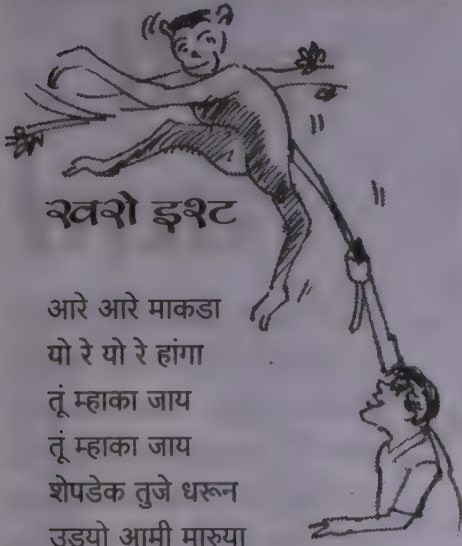 खरो इश्ट
आरे आरे माकडा
यो रे यो रे हांगा
तूं म्हाका जाय
तूं म्हाका जाय
शेपडेक तुजे धरून
उडयो आमी मारुया